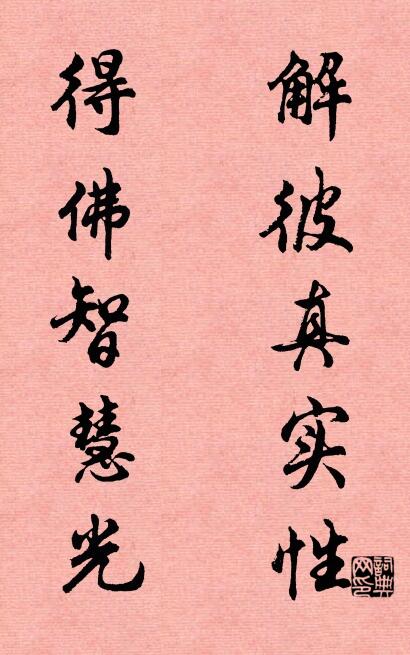 解彼真实性
得佛智慧光
詞典网印